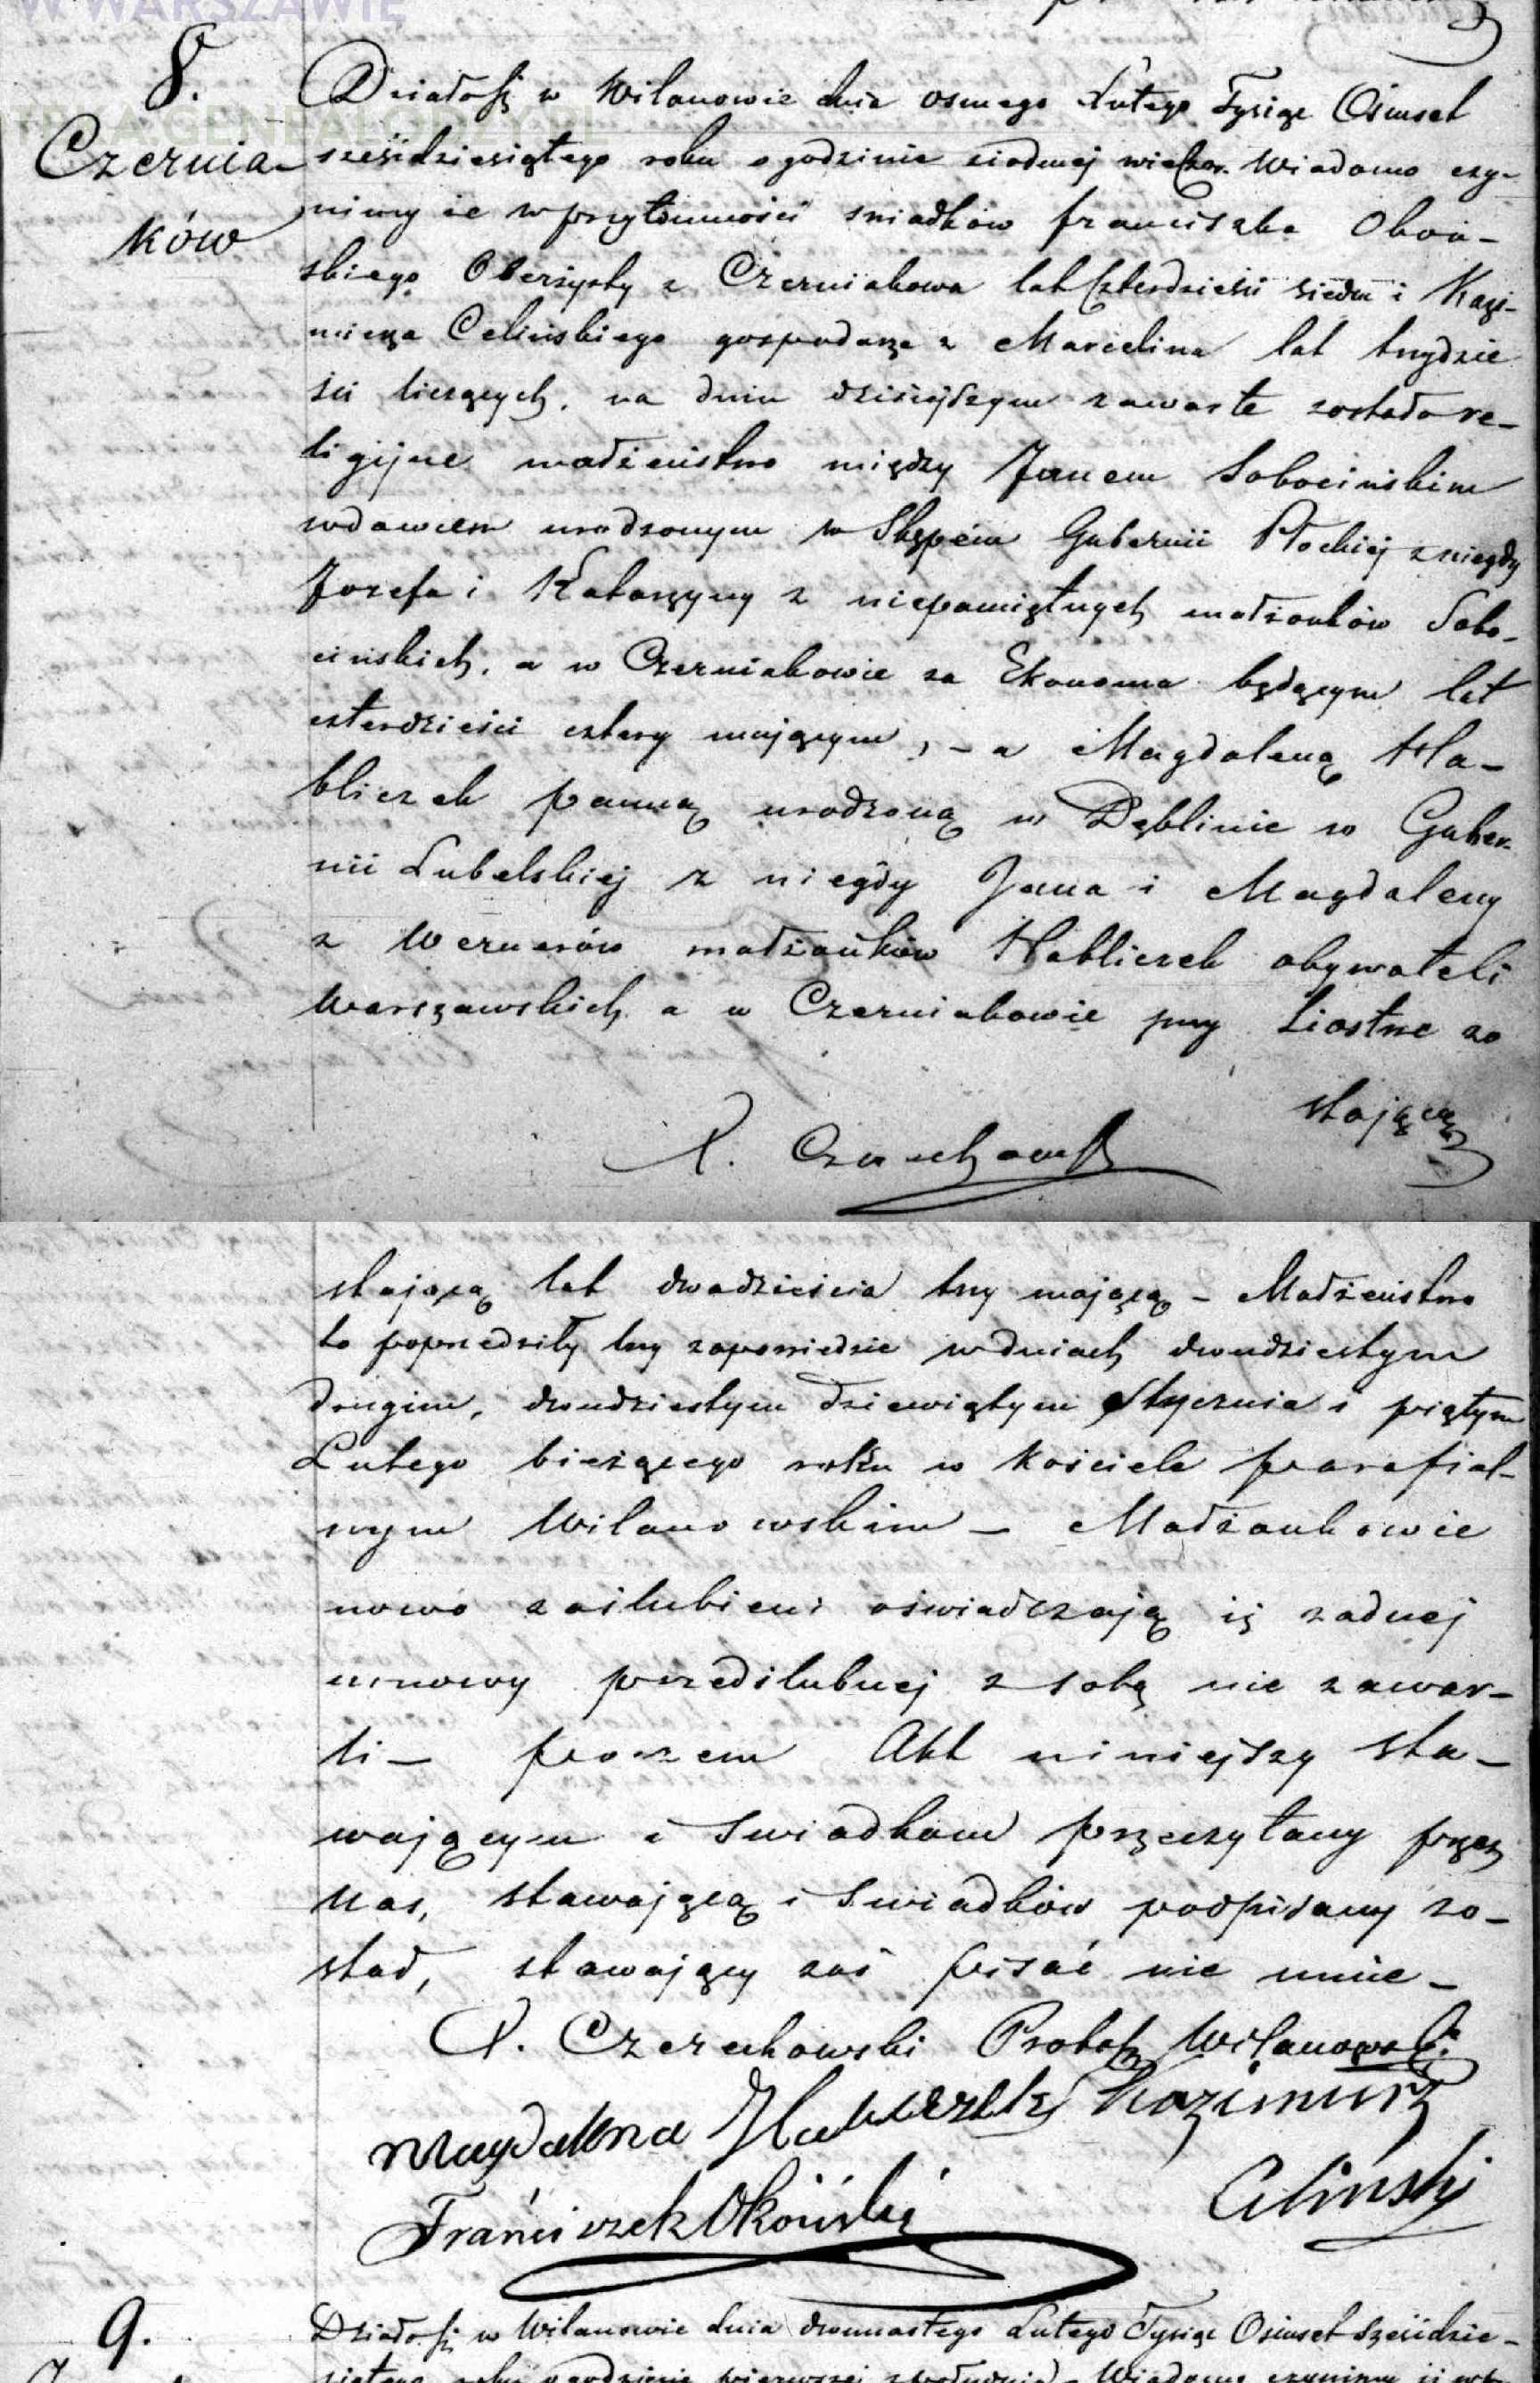 W WARSZAWIE
8.
Czernia-
ków
Działo się w Wilanowie dnia osmego Lutego Tysiąc Ośmset
sześćdziesiątego roku o godzinie siodmej wieczor. Wiadomo czy-
nimy że w przytomności swiadków franciszka Okoń-
skiego Oberżysty z Czerniakowa lat czterdzieści siedm i Kazi-
mierza Celińskiego gospodarza z Marcelina lat trzydzie
ści liczących, na dniu dzisiejszym zawarte zostało re-
ligijne małżeństwo między Janem Sobocińskim
wdowcem urodzonym w Skępem Gubernii Płockiej z niegdy
Jozefa i Katarzyny z niepamiętnych małżonków Sobo-
cińskich, a w Czerniakowie za Ekonoma będącym lat
czterdzieści cztery mającym, - a Magdaleną Ha-
bliczek panną urodzoną w Dęblinie w Guber-
nii Lubelskiej z niegdy Jana i Magdaleny
z Wernerów małżonków Habliczek obywateli
Warszawskich a w Czerniakowie przy Siostrze zo
stającą
X. Czechowski
stającą lat dwadzieścia trzy mającą - Małżeństwo
to poprzedziły trzy zapowiedzie w dniach dwudziestym
drugim, dwudziestym dziewiątym Stycznia i piątym
Lutego bieżącego roku w Kościele parafial-
nym Wilanowskim - Małżonkowie
nowo zaślubieni oświadczają iż żadnej
umowy przedślubnej z sobą nie zawar-
li - poczem Akt niniejszy sta-
wającym i Swiadkom przeczytany przez
Nas, stawającą i Swiadków podpisany zo-
stał, stawający zaś pisać nie umie -
X. Czechowski Probosz Wilanowski
Magdalena Habliczek Kazimierz
Celiński
Franciszek Okoński
9.
Działo się w Wilanowie dnia dwunastego Lutego Tysiąc Ośmset sześćdzie-
siątego roku o godzinie pierwszej z południa - Wiadomo czynimy iż w